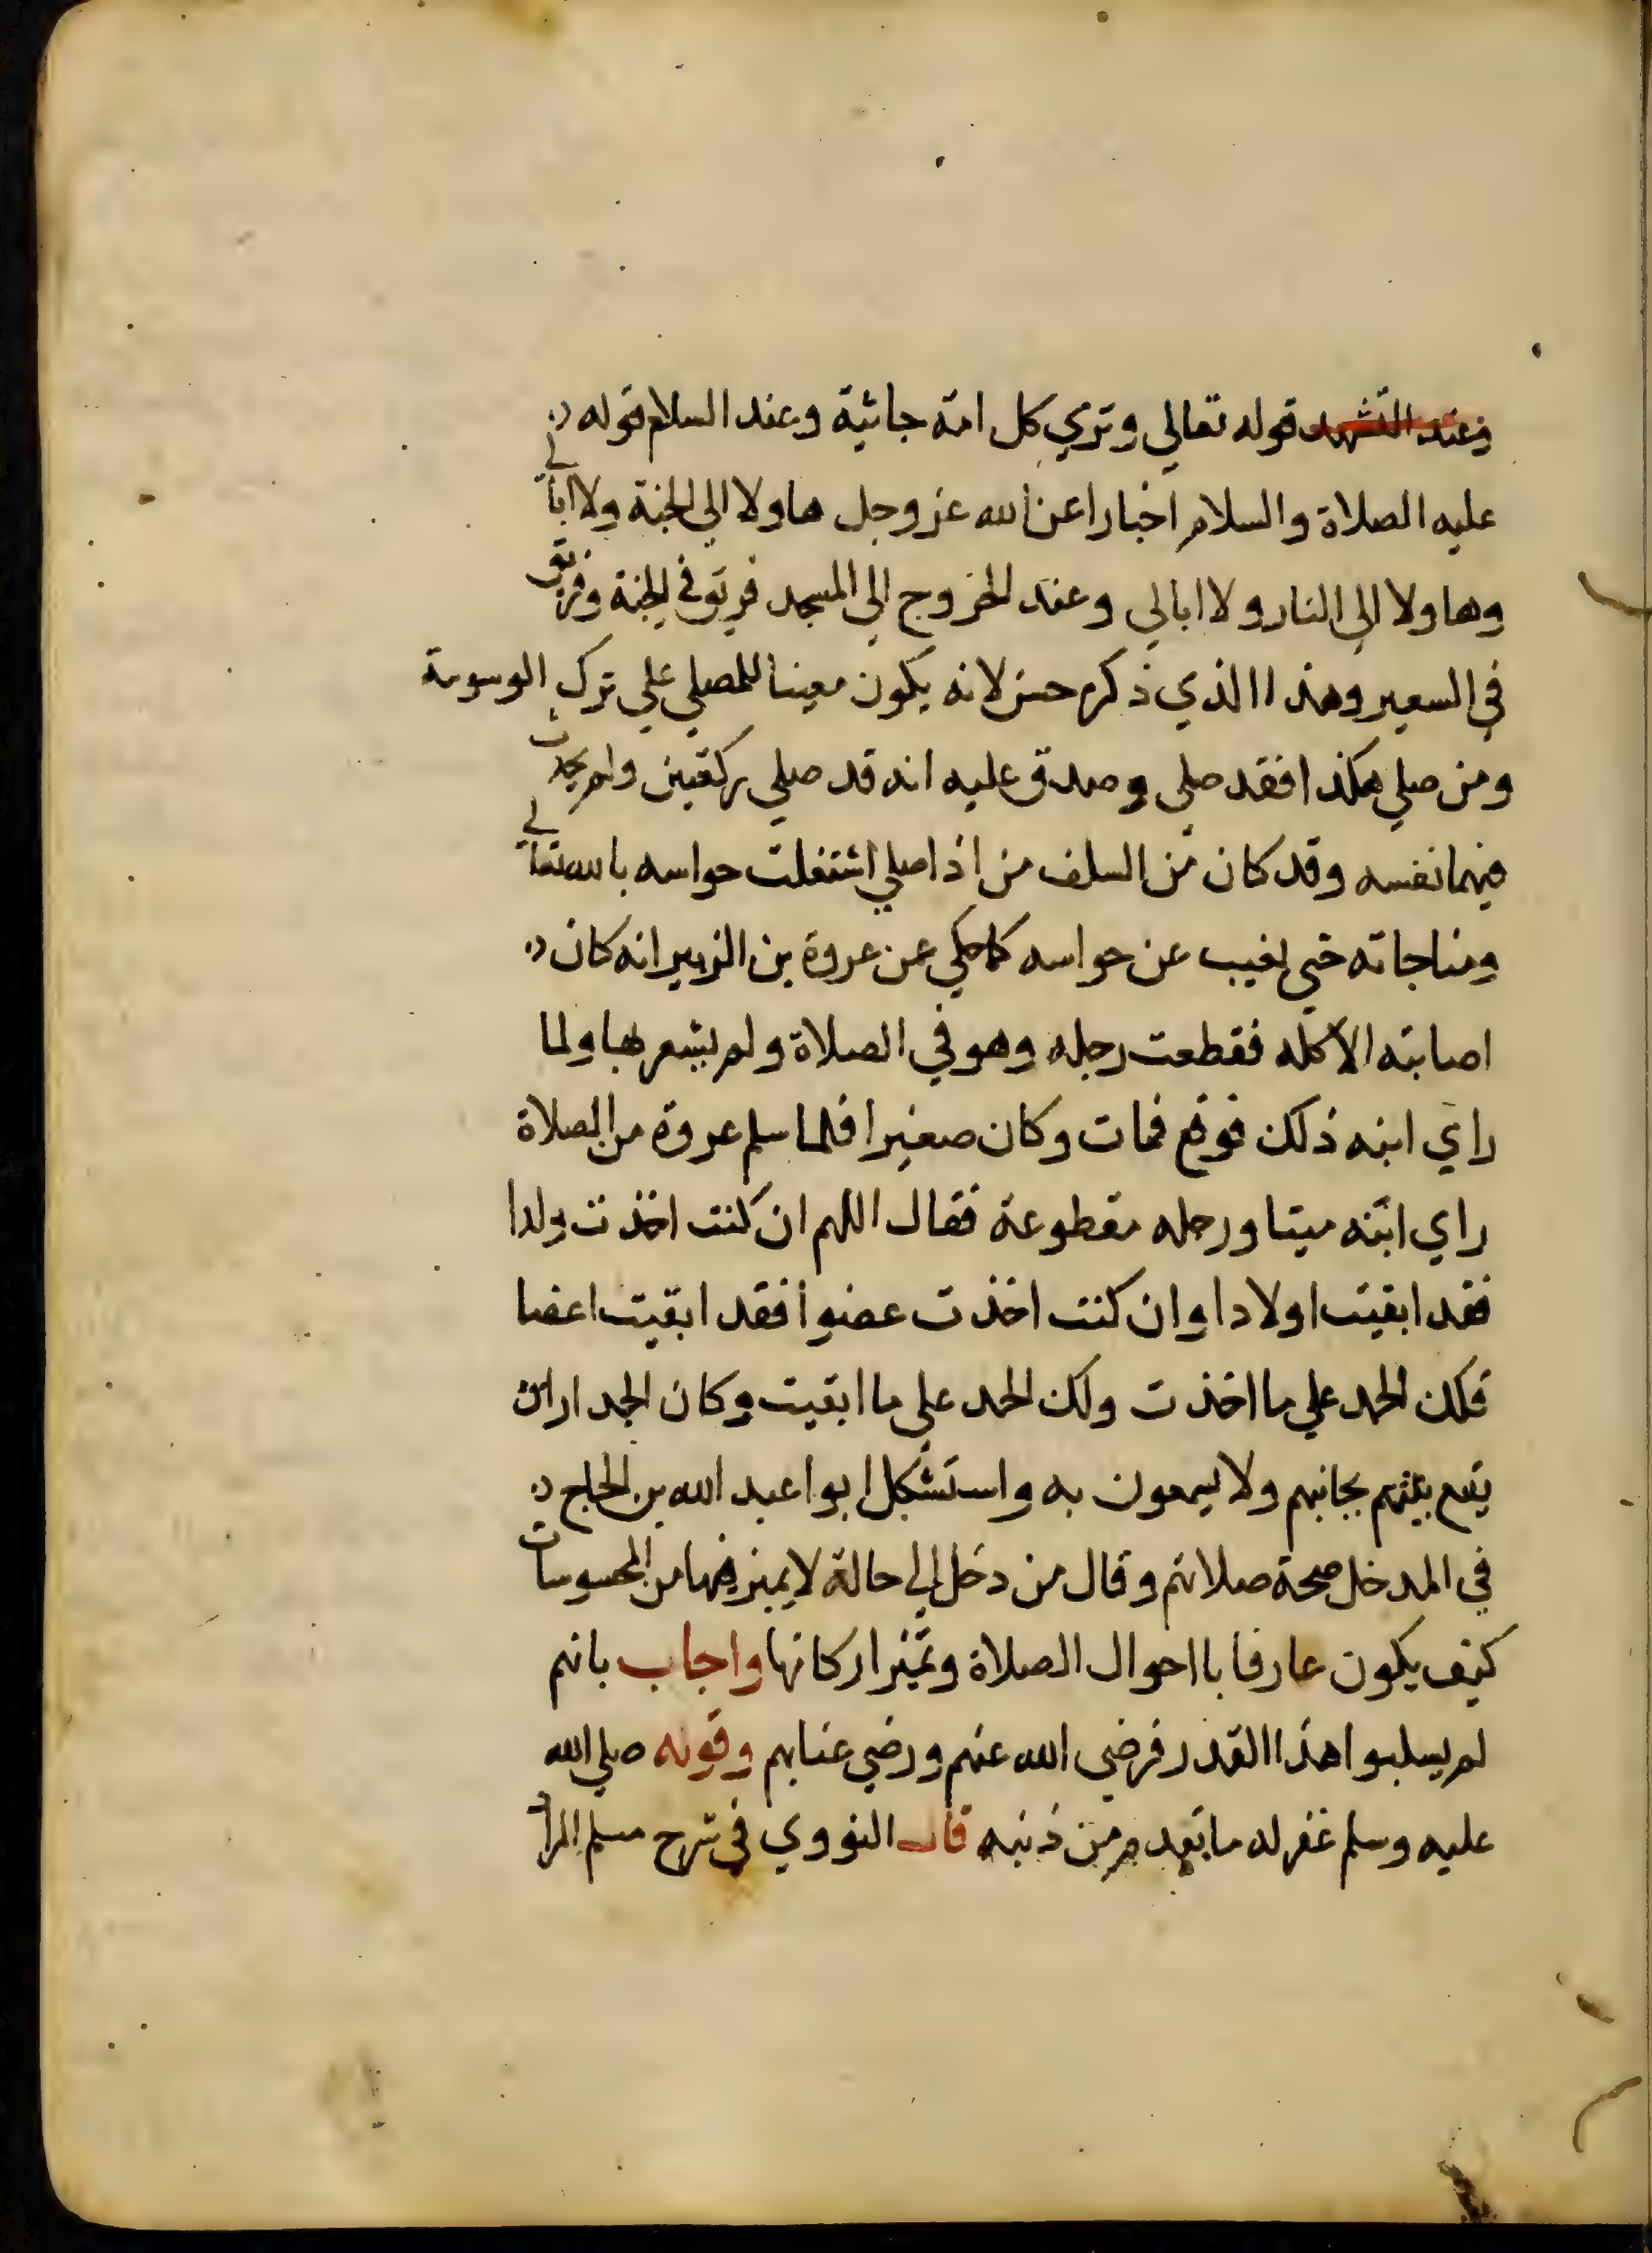 وعند التشهد قوله تعالي وتري كل امة جاثية وعند السلام قوله
عليه الصلاة والسلام اخبارا عن الله عز وجل هاولا الي الجنة ولا ابالي
وهاولا الي النار ولا ابالي وعند الخروج الي المسجد فريق في الجنة وفريق
في السعير وهذا الذي ذكره حسن لانه يكون معينا للمصلي علي ترك الوسوسة
ومن صلي هكذا فقد صلي وصدق عليه انه قد صلي ركعتين ولم يحدث
فيهما نفسه وقد كان من السلف من اذا صلي اشتغلت حواسه بالله تعالي
ومناجاته حتي يغيب عن حواسه كما حكي عن عروة بن الزبير انه كان
اصابته الاكله فقطعت رجله وهو في الصلاة ولم يشعر بها ولما
راي ابنه ذلك فوقع فمات وكان صغيرا فلما سلم عروة من الصلاة
راي ابنه ميتا ورجله مقطوعة فقال اللهم ان كنت اخذت ولدا
فقد ابقيت اولادا وان كنت اخذت عضوا فقد ابقيت اعضا
فلك الحمد علي ما اخذت ولك الحمد علي ما ابقيت وكان الجدار
يقع بجانبهم ولا يسمعون به واستشكل ابوا عبد الله بن الحاج
في المدخل صحة صلاتهم وقال من دخل الي حالة لا يميز فيها من المحسوسات
كيف يكون عارفا بااحوال الصلاة وتميز اركانها واجاب بانهم
لم يسلبوا هذا القدر فرضي الله عنهم ورضي عنا بهم وقوله صلي الله
عليه وسلم غفر له ما تقدم من ذنبه قال النووي في شرح مسلم المراد